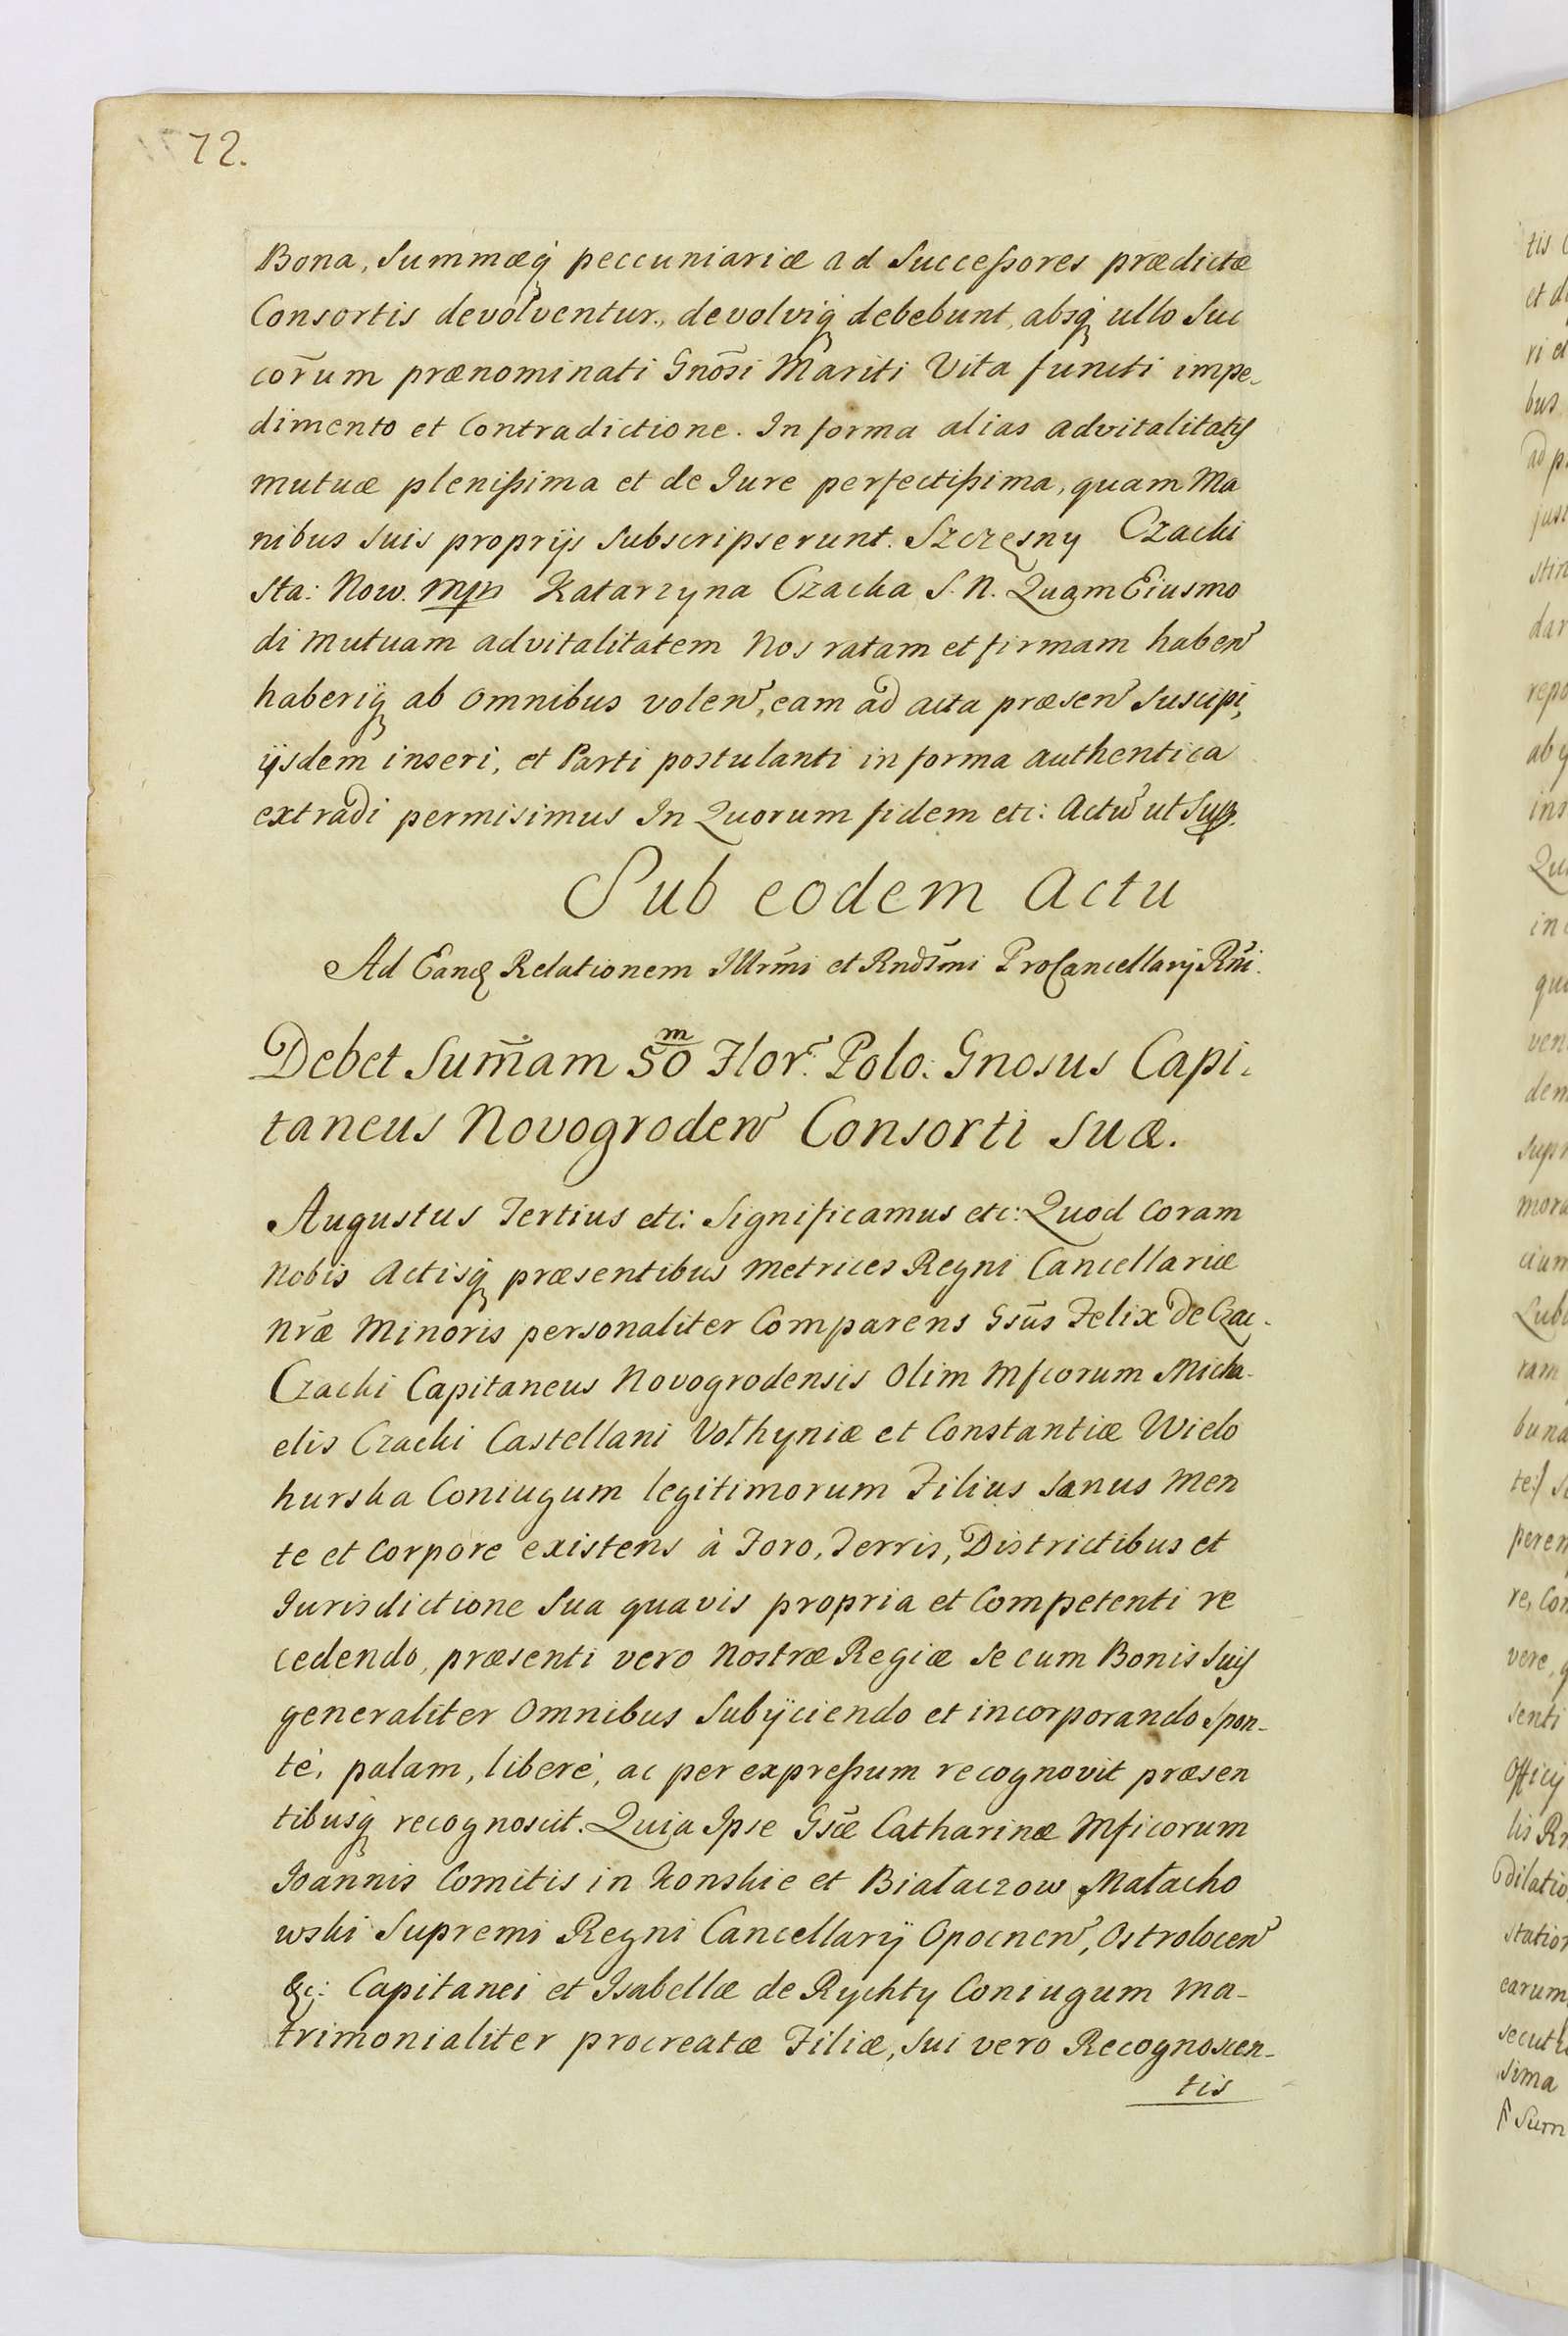 72.
Bona, Summæq́ peccuniariæ ad Succeßores prædictæ
Consortis devolventur, devolviq́ debebunt, absq́ ullo Suc
cor̄um prænominati Gnōsi Mariti Vita functi impe-
dimento et Contradictione. In forma alias advitalitatis
mutuæ plenißima et de Jure perfectißima, quam Ma
nibus suis proprijs Subscripserunt. Szczęsny Czacki
Sta: Now. mpp Katarzyna Czacka S. N. Quam Eiusmo
di mutuam advitalitatem Nos ratam et firmam haben̄
haberiq́ ab omnibus volen̄, eam ad acta præsen̄ Suscipi,
ijsdem inseri, et Parti postulanti in forma authentica
extradi permisimus In Quorum fidem etc: Actū ut Sup.
Sub eodem Actu
Ad Eandę Relationem Illr̄mi et Rnd̄smi ProCancellarij Rn̄i.
Debet Sum̄am 50 m Flor. Polo: Gnosus Capi-
taneus Novogroden̄ Consorti suæ.
Augustus Tertius etc: Significamus etc: Quod Coram
Nobis Actisq́ præsentibus Metrices Regni Cancellariæ
nr̄æ Minoris personaliter Comparens Gsūs Felix De Czac-
Czacki Capitaneus Novogrodensis Olim Mfcorum Micha-
elis Czacki Castellani Volhyniæ et Constantiæ Wielo
hurska Coniugum legitimorum Filius Sanus Men
te et Corpore existens à Foro, Terris, Districtibus et
Jurisdictione Sua quavis propria et Competenti re
cedendo, præsenti vero Nostræ Regiæ Se cum Bonis Suis
generaliter Omnibus Subijciendo et incorporando Spon-
tè, palam, liberè, ac per expreßum recognovit præsen
tibusq́ recognoscit. Quia Ipse Gsǣ Catharinæ Mficorum
Joannis Comitis in Konskie et Białaczow Małacho
wski Supremi Regni Cancellarij Opocnen̄, Ostrolocen̄
&c: Capitanei et Isabellæ de Rychty Coniugum Ma-
trimonialiter procreatæ Filiæ, Sui vero Recognoscen-
tis